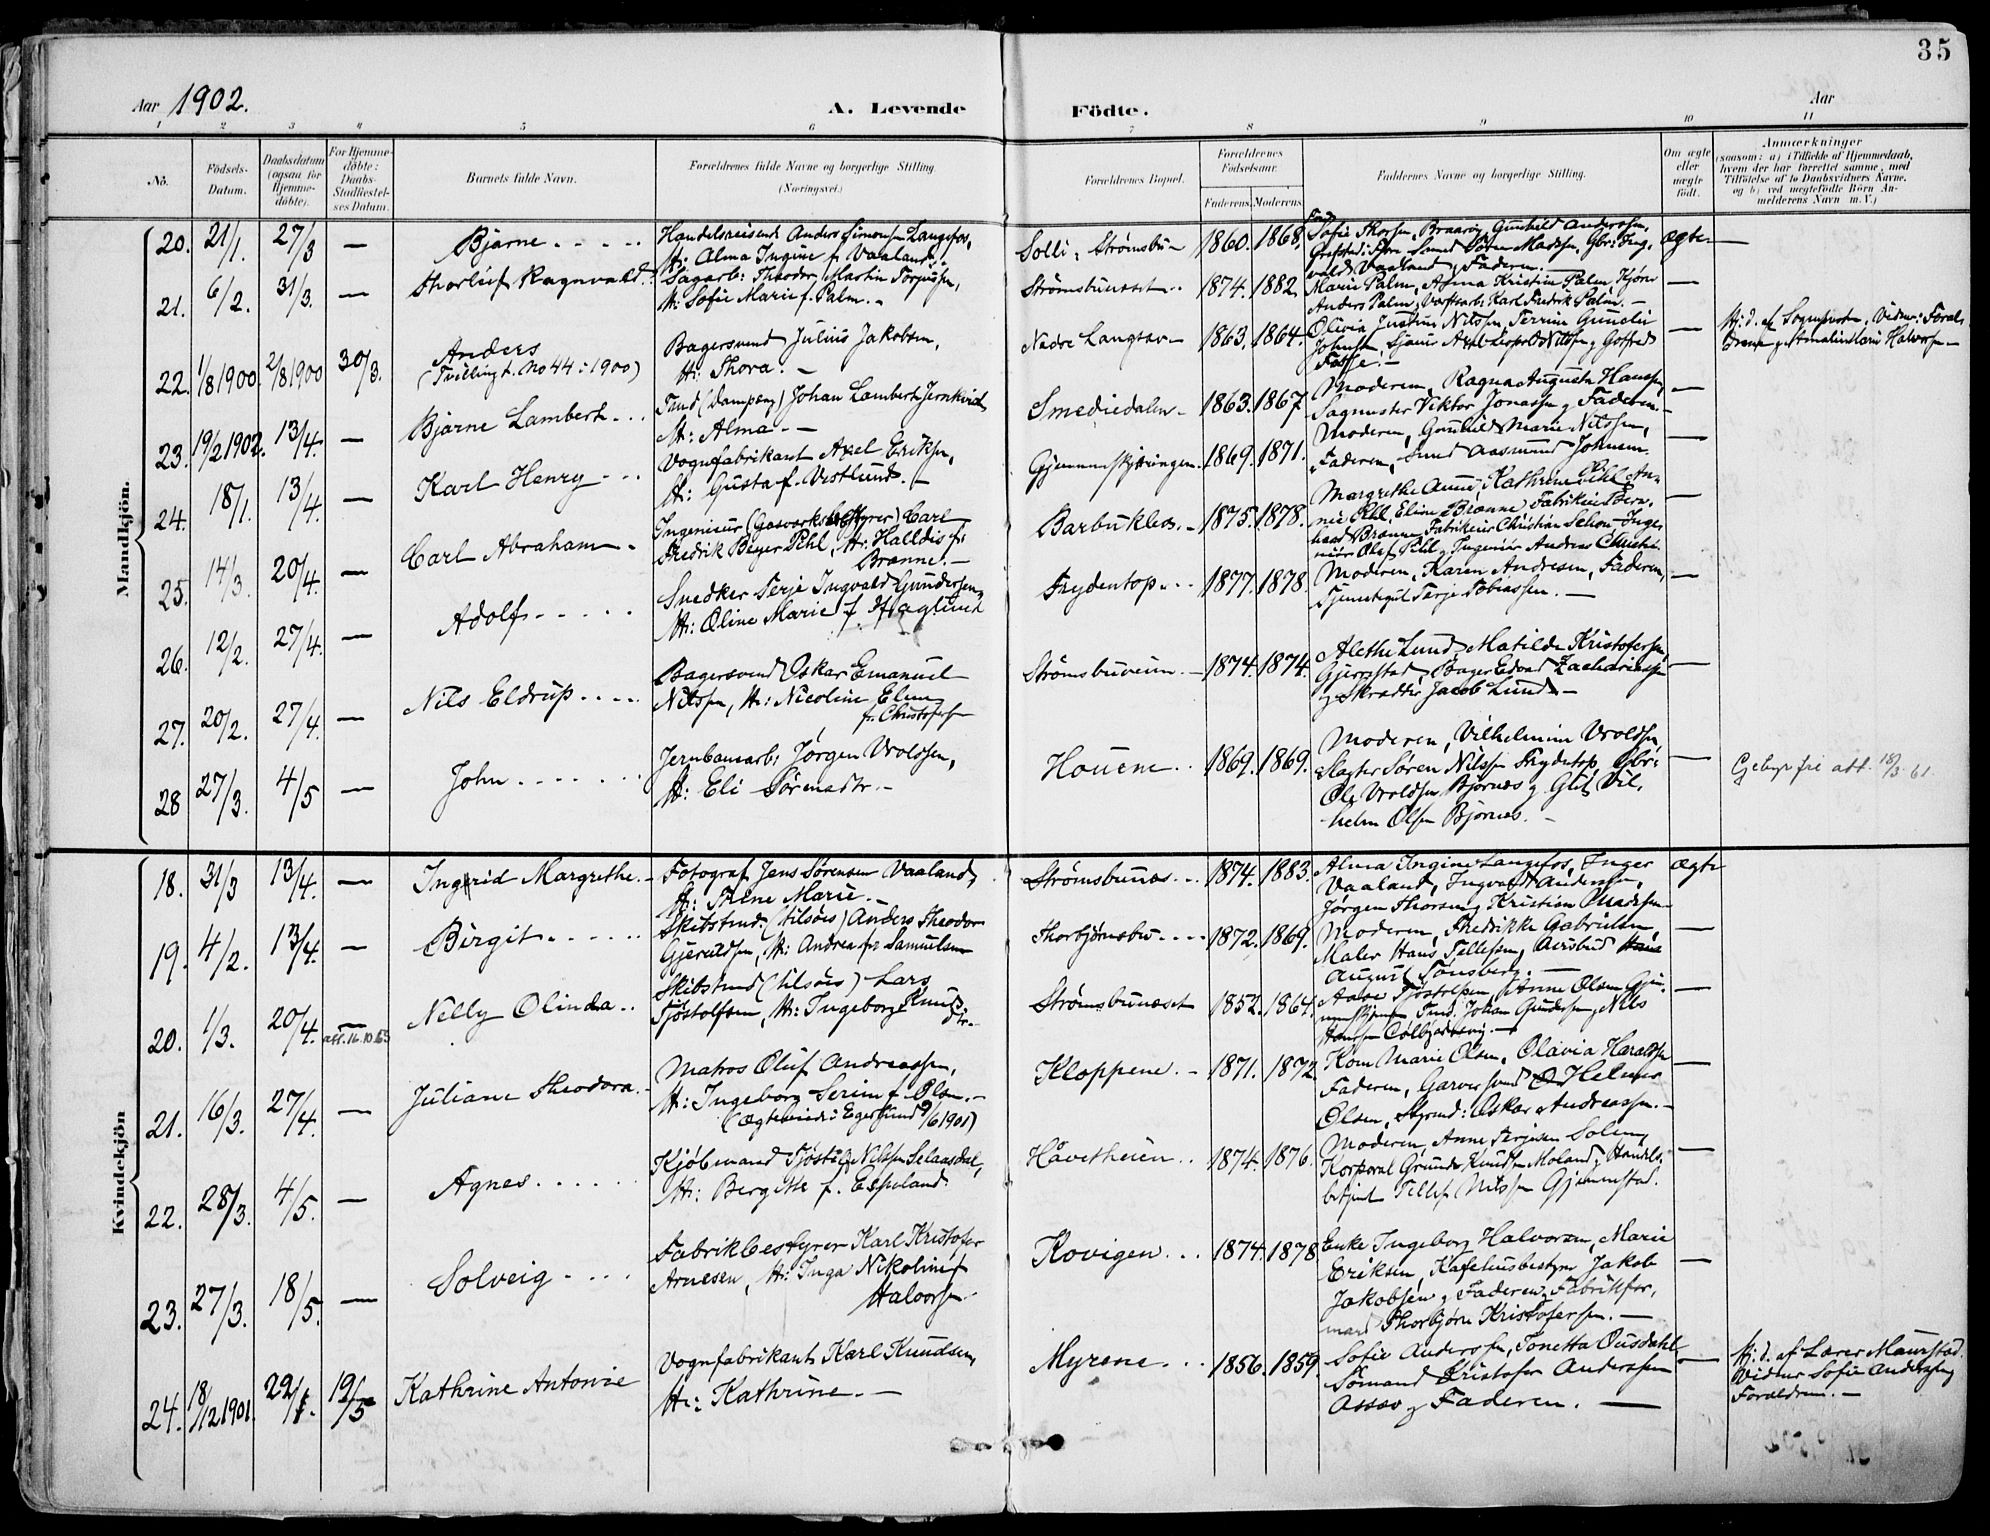 35
Aar 1902.
A. Levende Födte.
Aar
1 2 3 4 5 6 7 8 9 10 11
No.
Födsels-Datum.
Daabsdatum (ogsaa for Hjemme-döbte).
For Hjemme-döbte: Daabs-Stadfæstel-ses Datum.
Barnets fulde Navn.
Forældrenes fulde Navne og borgerlige Stilling (Næringsvei.)
Forældrenes Bopæl.
Forældrenes Födselsaar.
Faderens. Moderens.
Faddernes Navne og borgerlige Stilling.
Om ægte eller uægte födt.
Anmærkninger
(saasom: a) i Tilfælde af Hjemmedaab, hvem der har forrettet samme, med Tilföielse af to Daabsvidners Navne, og b) ved uægtefödte Börn An-melderens Navn m. V.)
Mandkjön.
20. 21/1. 27/3 — Bjarne
Handelsreisende Anders Simonsen Langefos,
H: Alma Ingine f. Vaaland.
Solli: Strømsbu 1860. 1868.
Sofie Thorsen, Braarøy, Gunhild Anderssen,
ægte —
21. 6/2. 31/3. — Thorleif Ragnvald
Sagarb: Theodor Martin Torjussen,
H: Sofie Marie f. Palm. —
Strømsbuneset 1874. 1882.
Marie Palm, Alma Kristine Palm
Anders Palm, Karl Fredrik Palm. —
22. 1/8 1900. 2/8 1900 30/3. Anders
(Tvilling t. No 44: 1900)
Bagersvend Julius Jakobsen,
H: Thora. —
Nedre Langsæ — 1863. 1864.
Olivia Justine Nilssen,
23. 19/2 1902. 13/4. — Bjarne Lambert
Johan Lambert Jernkvist
H: Alma. —
Smededalen — 1863. 1867.
Moderen, Ragna Augusta Hansen,
Sagmester Viktor Jonassen, Faderen. —
24. 18/1. 13/4. — Karl Henry
Vognfabrikant Axel Eriksen,
H: Gusta f. Vestlund. —
1869. 1871.
Moderen, Gunhild Marie Nilssen,
Faderen, Aasmund Johnsen.
25. 14/3. 20/4. — Carl Abraham
Ingeniør (Gasværksbestyrer) Carl
Fredrik Beyer Pihl, H: Halldis f.
Brønne. —
Barbukleo. 1875. 1878.
Margrethe Aune,
Ingeniør Andreas
26. 12/2. 27/4. — Adolf
Snedker Terje Ingvald Gundersen,
H: Oline Marie f. Haglund
Frydentop 1877. 1878.
Moderen, Karen Andresen, Faderen,
Tjenestegut Terje Tobiassen. —
27. 20/2. 27/4. — Nils Eldrup
Bagersvend Oskar Emanuel
Nilssen, H: Nicoline Elene
f. Christofersen
Strømsbuveien 1874. 1874.
Alethe Lund, Matilde Kristofersen
Gjerstad, Bager Edvard Zachariassen
og Skrædder Jacob Lund. —
28 27/3. 4/5 — John
Jernbanearb: Jørgen Vroldsen,
H: Eli Sørensdtr. —
Houene 1869. 1869.
Moderen, Vilhelmine Vroldsen,
Slagter Søren Nilssen Frydetop,
Ole Vroldsen Bjørnes,
helm Olsen Bjørnes. —
18/3 61.
Kvindekjön
18. 31/3 13/4. — Ingrid Margrethe
Fotograf Jens Sørensen Vaaland,
H: Trine Marie. —
Strømsbunes 1874. 1883.
Alma Ingine Langefos, Inger
Vaaland, Ingvald Andersen,
Jørgen Thorsen, Kristian Madsen
ægte
19. 4/2. 13/4. — Birgit
Skibstmd. (tilsøes) Anders Theodor
Gjeruldsen, H: Andrea f. Samuelsen
Thorbjørnsbu 1872. 1869.
Moderen, Fredrikke Gabrielsen,
Maler Hans Tellefsen,
August Tønsberg. —
20. 1/3. 20/4. — Nelly Olinda
att. 16.10.65
Skibstmd (tilsøes) Lars
Tjøstolfsen, H: Ingeborg Knuts
dtr.
Strømsbuneset 1852. 1864.
Aase Tjøstolfsen, Anne Olsen
Johan Gundersen, Nils
21. 16/3. 27/4. — Juliane Theodora
Matros Oluf Andreassen,
H: Ingeborg Serine f. Olsen. —
(Ægteviede i Egersund 9/6 1901)
Kloppene 1871. 1872
Kone Marie Olsen, Olavia Haraldsen
Faderen, Garversvend Helmer
Olsen, Styrmd: Oskar Andreassen. —
22. 28/3. 4/5. — Agnes
Kjøbmand Tjøstel Nilssen Selaasdal,
H: Bergitte f. Espeland.
Havetheien 1874. 1876.
Moderen, Anne Terjesen Solem,
Korporal Gunde Knutsen Moland, Handels
betjent Tellef Nilssen Gjennestad.
23. 27/3. 18/5. — Solveig
Fabrikbestyrer Karl Kristofer
Arnesen, H: Inga Nikoline f
Halvorsen
Kovigen 1874. 1878
Enke Ingeborg Halvorsen, Marie
Eriksen, Kafehusbestyrer Jakob
Jakobsen, Faderen, Fabrikfor,
mand Thorbjørn Kristofersen. —
24. 18/12 1901. 22/1. 19/5 Kathrine Antonie
Vognfabrikant Karl Knudsen,
H: Kathrine. —
Myrene 1856. 1859.
Sofie Anderssen, Tonetta Ousdahl
Sømand Kristofer Anderssen
Assæv, Faderen. —
Hj. d. af Lærer Maurstad.
Vidner Sofie Anderssen,
Forældrene. —